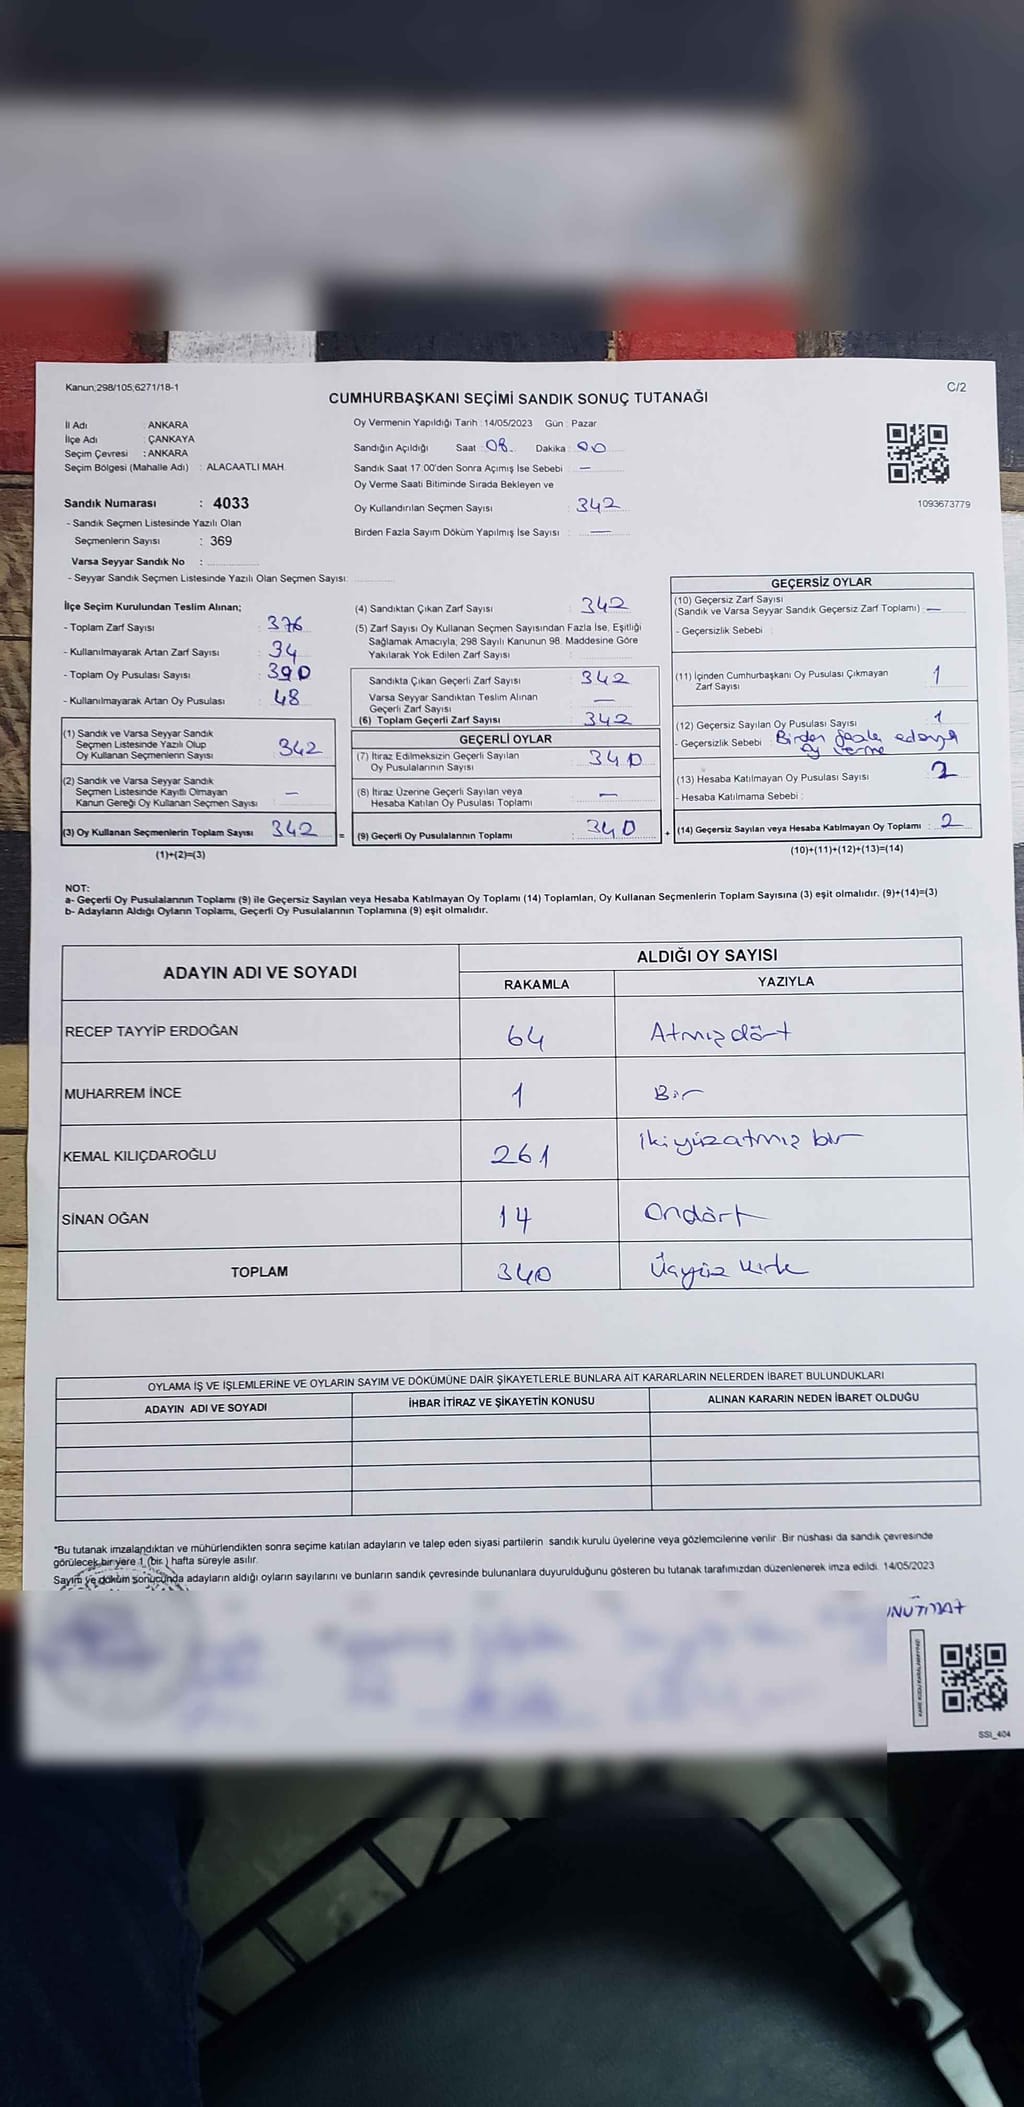 Kanun;298/105;6271/18-1
C/2
CUMHURBAŞKANI SEÇİMİ SANDIK SONUÇ TUTANAĞI
İl Adı : ANKARA
İlçe Adı : ÇANKAYA
Seçim Çevresi : ANKARA
Seçim Bölgesi (Mahalle Adı) : ALACAATLI MAH.
Sandık Numarası : 4033
- Sandık Seçmen Listesinde Yazılı Olan
Seçmenlerin Sayısı : 369
Varsa Seyyar Sandık No :
- Seyyar Sandık Seçmen Listesinde Yazılı Olan Seçmen Sayısı:
Oy Vermenin Yapıldığı Tarih :14/05/2023 Gün : Pazar
Sandığın Açıldığı Saat : 08 Dakika : 00
Sandık Saat 17.00'den Sonra Açımış İse Sebebi : —
Oy Verme Saati Bitiminde Sırada Bekleyen ve
Oy Kullandırılan Seçmen Sayısı : 342
Birden Fazla Sayım Döküm Yapılmış İse Sayısı : —
1093673779
İlçe Seçim Kurulundan Teslim Alınan;
- Toplam Zarf Sayısı : 376
- Kullanılmayarak Artan Zarf Sayısı : 34
- Toplam Oy Pusulası Sayısı : 390
- Kullanılmayarak Artan Oy Pusulası : 48
(1) Sandık ve Varsa Seyyar Sandık
Seçmen Listesinde Yazılı Olup
Oy Kullanan Seçmenlerin Sayısı : 342
(2) Sandık ve Varsa Seyyar Sandık
Seçmen Listesinde Kayıtlı Olmayan
Kanun Gereği Oy Kullanan Seçmen Sayısı : —
(3) Oy Kullanan Seçmenlerin Toplam Sayısı : 342
(1)+(2)=(3)
(4) Sandıktan Çıkan Zarf Sayısı : 342
(5) Zarf Sayısı Oy Kullanan Seçmen Sayısından Fazla İse, Eşitliği
Sağlamak Amacıyla; 298 Sayılı Kanunun 98. Maddesine Göre
Yakılarak Yok Edilen Zarf Sayısı :
Sandıkta Çıkan Geçerli Zarf Sayısı : 342
Varsa Seyyar Sandıktan Teslim Alınan
Geçerli Zarf Sayısı : —
(6) Toplam Geçerli Zarf Sayısı : 342
GEÇERLİ OYLAR
(7) İtiraz Edilmeksizin Geçerli Sayılan
Oy Pusulalarının Sayısı : 340
(8) İtiraz Üzerine Geçerli Sayılan veya
Hesaba Katılan Oy Pusulası Toplamı : —
= (9) Geçerli Oy Pusulalarının Toplamı : 340
GEÇERSİZ OYLAR
(10) Geçersiz Zarf Sayısı
(Sandık ve Varsa Seyyar Sandık Geçersiz Zarf Toplamı) : —
- Geçersizlik Sebebi :
(11) İçinden Cumhurbaşkanı Oy Pusulası Çıkmayan
Zarf Sayısı : 1
(12) Geçersiz Sayılan Oy Pusulası Sayısı : 1
- Geçersizlik Sebebi : Birden fazla adaya
oy verme
(13) Hesaba Katılmayan Oy Pusulası Sayısı : 2
- Hesaba Katılmama Sebebi :
+ (14) Geçersiz Sayılan veya Hesaba Katılmayan Oy Toplamı : 2
(10)+(11)+(12)+(13)=(14)
NOT:
a- Geçerli Oy Pusulalarının Toplamı (9) ile Geçersiz Sayılan veya Hesaba Katılmayan Oy Toplamı (14) Toplamları, Oy Kullanan Seçmenlerin Toplam Sayısına (3) eşit olmalıdır. (9)+(14)=(3)
b- Adayların Aldığı Oyların Toplamı, Geçerli Oy Pusulalarının Toplamına (9) eşit olmalıdır.
ADAYIN ADI VE SOYADI
ALDIĞI OY SAYISI
RAKAMLA YAZIYLA
RECEP TAYYİP ERDOĞAN 64 Atmışdört
MUHARREM İNCE 1 Bir
KEMAL KILIÇDAROĞLU 261 ikiyüzatmış bir
SİNAN OĞAN 14 Ondört
TOPLAM 340 Üçyüz kırk
OYLAMA İŞ VE İŞLEMLERİNE VE OYLARIN SAYIM VE DÖKÜMÜNE DAİR ŞİKAYETLERLE BUNLARA AİT KARARLARIN NELERDEN İBARET BULUNDUKLARI
ADAYIN ADI VE SOYADI İHBAR İTİRAZ VE ŞİKAYETİN KONUSU ALINAN KARARIN NEDEN İBARET OLDUĞU
*Bu tutanak imzalandıktan ve mühürlendikten sonra seçime katılan adayların ve talep eden siyasi partilerin sandık kurulu üyelerine veya gözlemcilerine verilir. Bir nüshası da sandık çevresinde
görülecek bir yere 1 (bir ) hafta süreyle asılır.
Sayım ve döküm sonucunda adayların aldığı oyların sayılarını ve bunların sandık çevresinde bulunanlara duyurulduğunu gösteren bu tutanak tarafımızdan düzenlenerek imza edildi. 14/05/2023
SSI_404